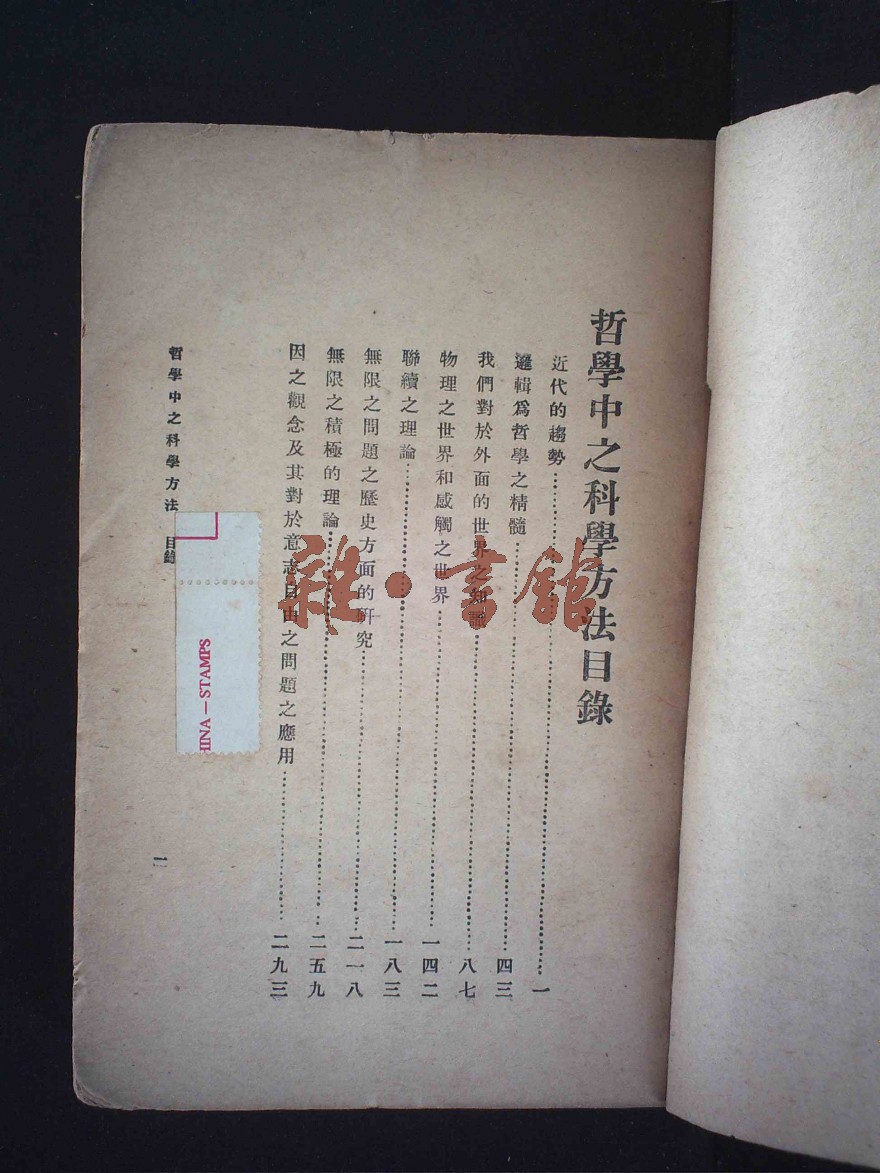 哲學中之科學方法目錄
近代的趨勢……一
邏輯爲哲學之精髓……四三
我們對於外面的世界之知識……八七
物理之世界和感觸之世界……一四二
聯續之理論……一八三
無限之問題之歷史方面的研究……二一八
無限之積極的理論……二五九
因之觀念及其對於意志自由之問題之應用……二九三
哲學中之科學方法 目錄
一
雜·書館
HINA — STAMPS